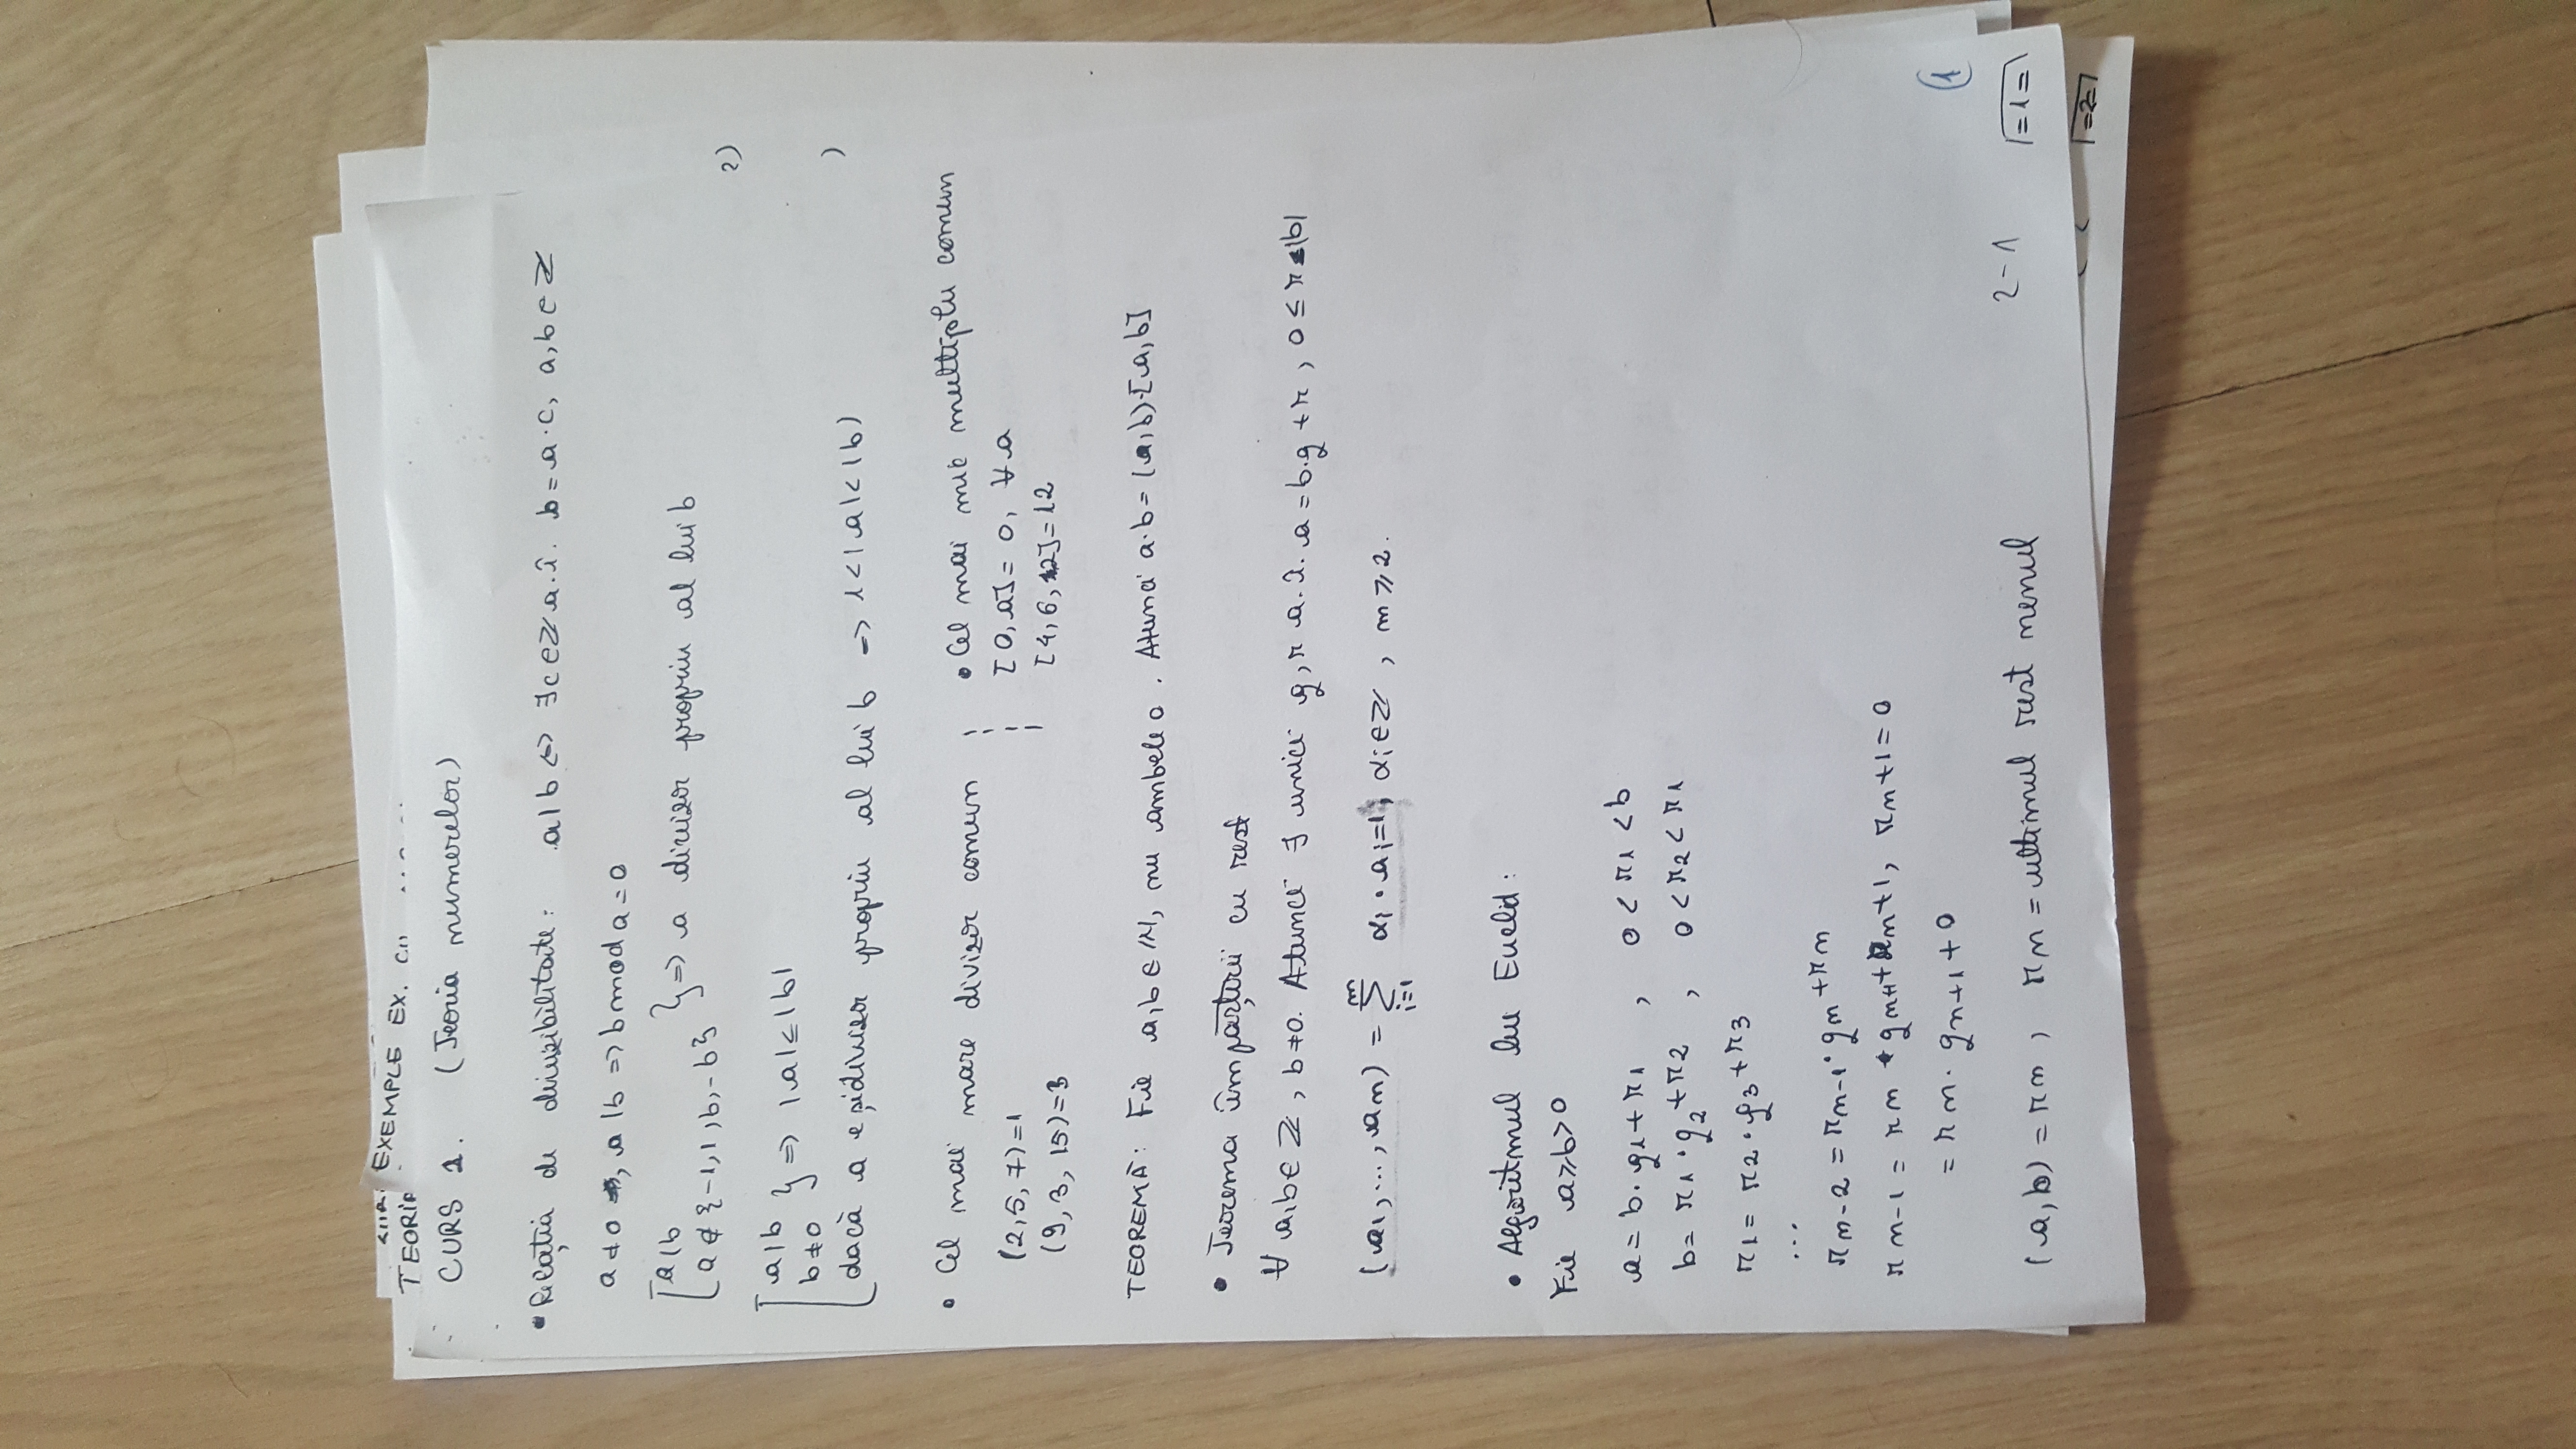 TEORIA
EXEMPLE EX.
CURS 1. (Teoria numerelor)
• Relația de divizibilitate: a|b <=> ∃c∈ℤ a.î. b=a·c, a,b∈ℤ
a≠0, a|b => b mod a=0
[a|b
a∉{-1,1,b,-b} } => a divizor propriu al lui b
2)
[a|b
b≠0 } => |a|≤|b|
)
dacă a e și divizor propriu al lui b => 1<|a|<|b|
• Cel mai mare divizor comun
(2,5,7)=1
(9,3,15)=3
• Cel mai mic multiplu comun
[0,a]=0, ∀a
[4,6,12]=12
TEOREMĂ: Fie a,b∈ℕ, nu ambele 0. Atunci a·b=(a,b)·[a,b]
• Teorema împărțirii cu rest
∀a,b∈ℤ, b≠0. Atunci ∃ unici q,r a.î. a=b·q+r, 0≤r<|b|
(a1,...,an) = ∑ i=1 n αi·ai=1; αi∈ℤ, n≥2.
• Algoritmul lui Euclid:
Fie a≥b>0
a=b·q1+r1, 0<r1<b
b=r1·q2+r2, 0<r2<r1
r1=r2·q3+r3
...
rn-2=rn-1·qn+rn
rn-1=rn·qn+1+rn+1, rn+1=0
=rn·qn+1+0
(a,b)=rn, rn=ultimul rest nenul
2-1
1
=1=
=2=